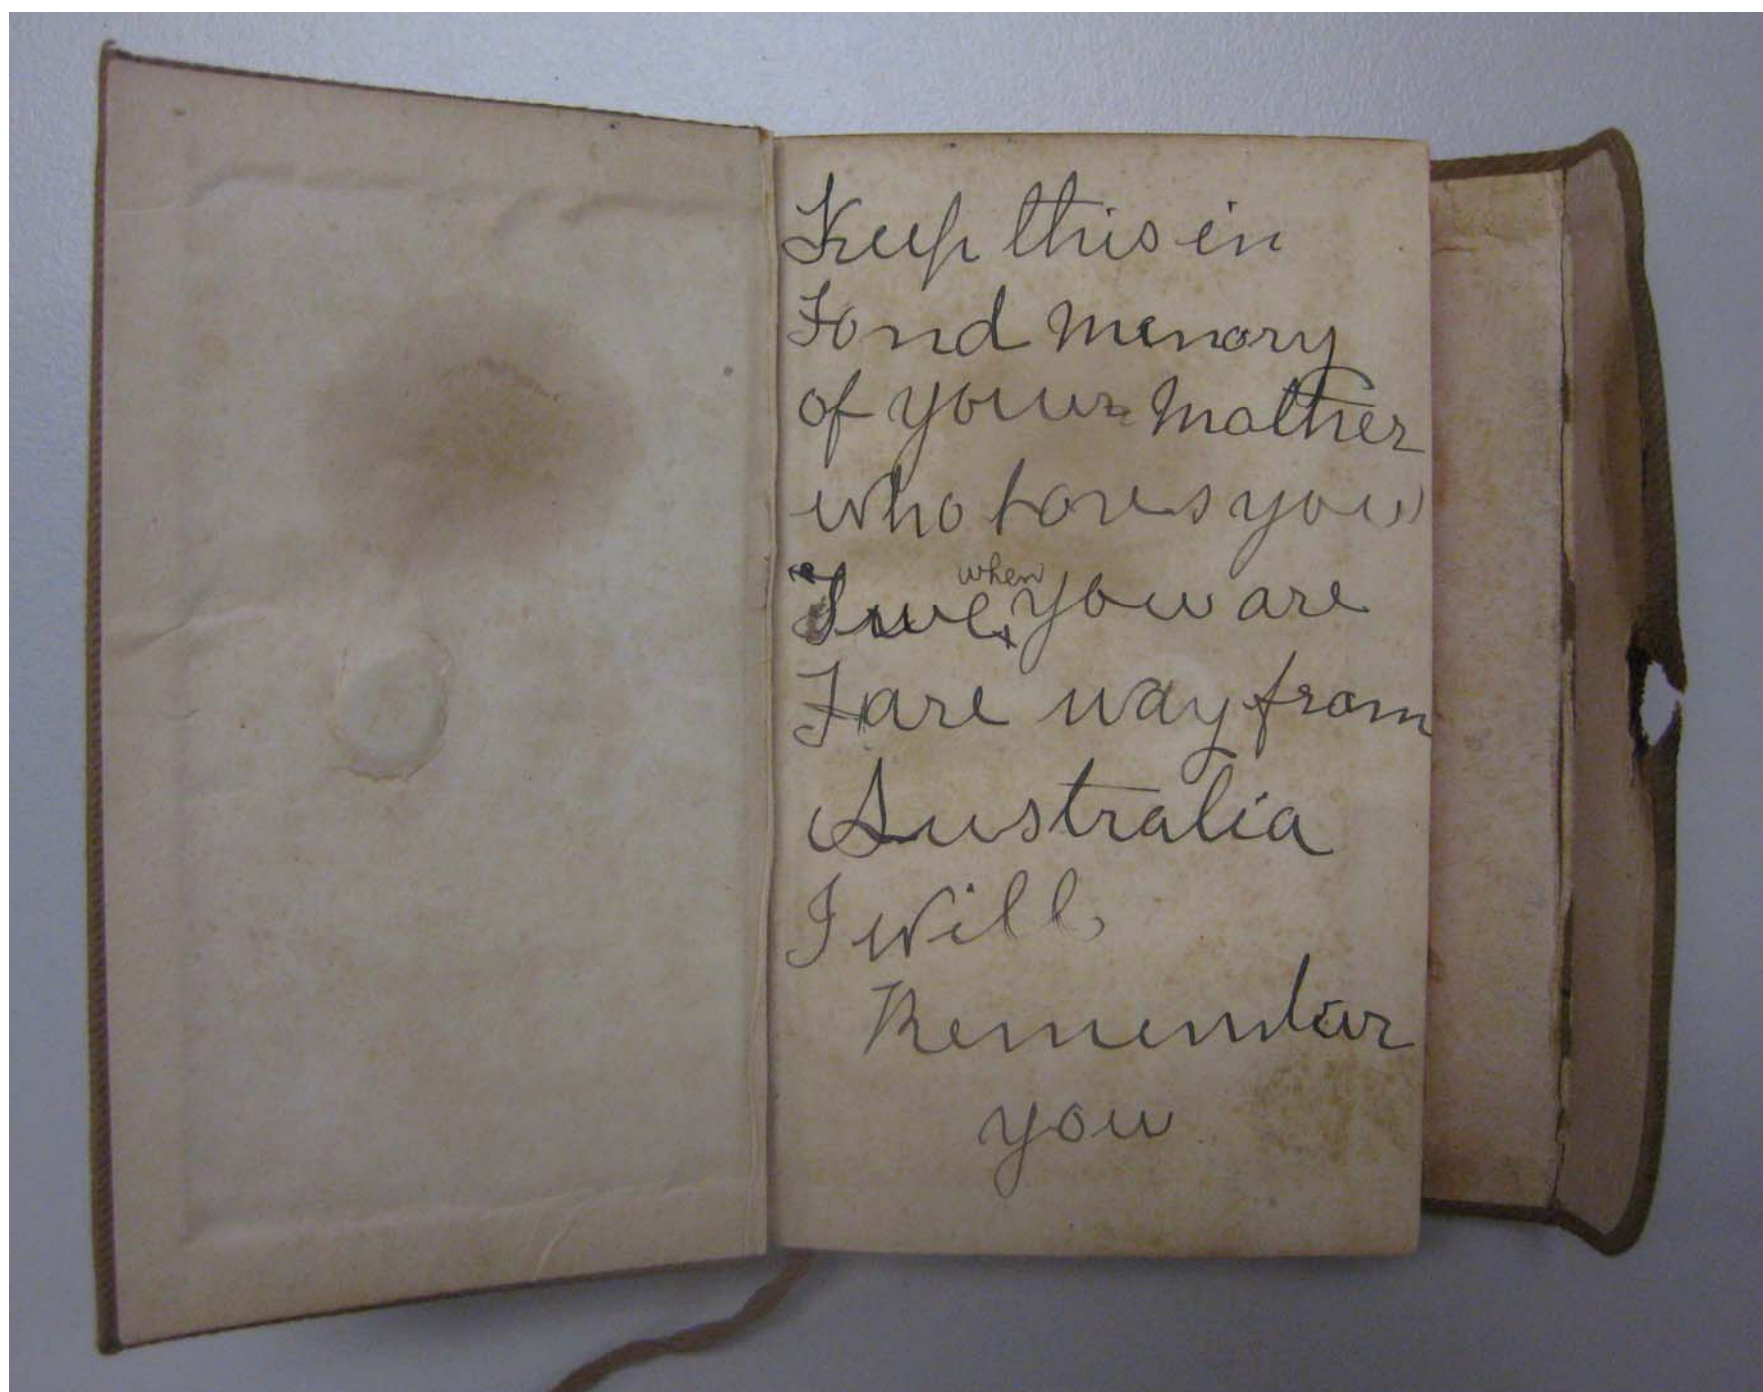 Keep this in
Fond Memory
of your Mother
who loves you
True when you are
Fare way from
Australia
I will
Remember
you